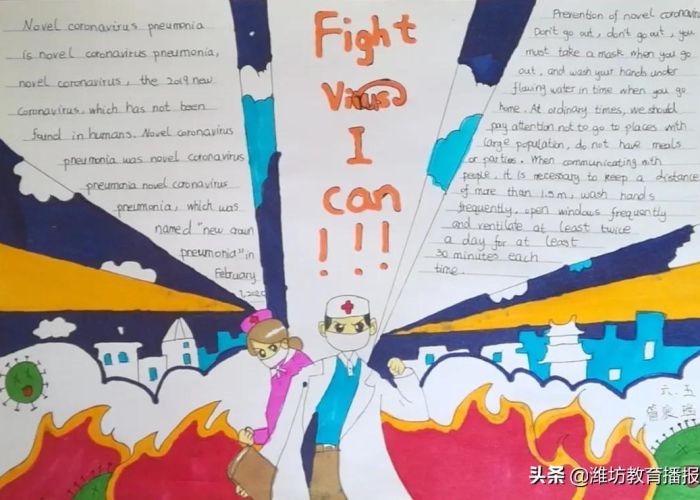 Novel coronavirus pneumonia
is novel coronavirus pneumonia,
novel coronavirus, the 2019 new
coronavirus, which has not been
found in humans. Novel coronavirus
pneumonia was novel coronavirus
pneumonia novel coronavirus
pneumonia, which was
named "new crown
pneumonia" in
February
7, 2020
Fight
Virus
I
can
!!!
Prevention of novel coronavirus
Don't go out, don't go out, you
must take a mask when you go
out, and wash your hands under
flowing water in time when you go
home. At ordinary times, we should
pay attention not to go to places with
large population, do not have meals
or parties. When communicating with
people, it is necessary to keep a distance
of more than 1.5m, wash hands
frequently. open windows frequently
and ventilate at least twice
a day for at least
30 minutes each
time.
六、五
头条 @潍坊教育播报